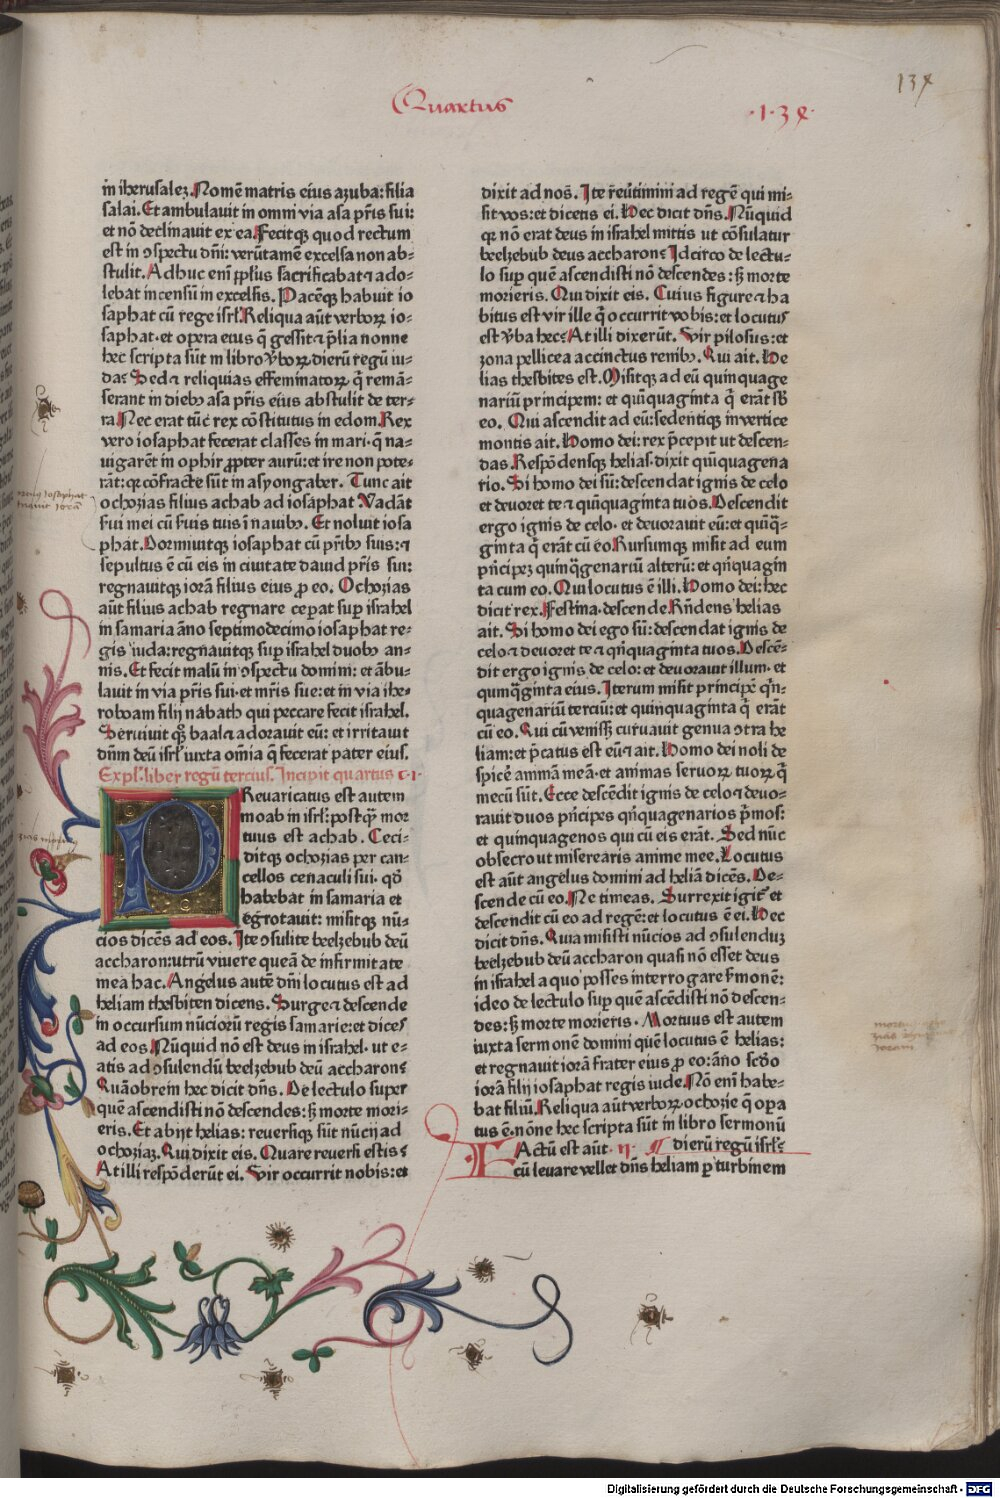 Quartus
·1·3ꝝ·
in iherusalez. Nomē matris eius azuba: filia
salai. Et ambulauit in omni via asa pr̄is sui:
et nō declinauit ex ea. Fecitqꝫ quod rectum
est in ɔspectu dn̄i: verūtamē excelsa non ab-
stulit. Adhuc eni ppl̄us sacrificabat ⁊ ado-
lebat incensū in excelsis. Pacēqꝫ habuit io
saphat cū rege isrl̄. Reliqua aūt verborꝝ io-
saphat· et opera eius q̄ gessit ⁊ p̄lia nonne
hec scripta sūt in libro v̓borꝝ dierū regū iu-
da? Sed ⁊ reliquias effeminatorꝝ q̄ remā-
serant in diebꝰ asa pr̄is eius abstulit de ter-
ra. Nec erat tūc rex cōstitutus in edom. Rex
vero iosaphat fecerat classes in mari· q̄ na-
uigarēt in ophir ꝓpter aurū: et ire non pote-
rāt: qꝛ cōfracte sūt in asyongaber. Tunc ait
ochozias filius achab ad iosaphat Vadāt
serui mei cū seruis tuis ī nauibꝰ. Et noluit iosa
phat. Dormiuitqꝫ iosaphat cū pr̄ibꝰ suis: ⁊
sepultus ē cū eis in ciuitate dauid pr̄is sui:
regnauitqꝫ iorā filius eius ꝓ eo. Ochozias
aūt filius achab regnare ceperat sup̄ israhel
in samaria āno septimodecimo iosaphat re-
gis iuda: regnauitqꝫ sup̄ israhel duobꝰ an-
nis. Et fecit malū in ɔspectu domini: et ābu-
lauit in via pr̄is sui· et mr̄is sue: et in via ihe-
roboam filij nabath qui peccare fecit israhel.
Seruiuit qꝫ baal ⁊ adorauit eū: et irritauit
dn̄m deū isrl̄ iuxta om̄ia q̄ fecerat pater eius.
Expl̄. liber regū tercius. Incipit quartus c·I·
PReuaricatus est autem
moab in isrl̄: postqꝫ mor
tuus est achab. Ceci-
ditqꝫ ochozias per can-
cellos cenaculi sui· qd̓
habebat in samaria et
egrotauit: misitqꝫ nū-
cios dicēs ad eos. Ite ɔsulite beelzebub deū
accharon: utrū viuere queā de infirmitate
mea hac. Angelus autē dn̄i locutus est ad
heliam thesbiten dicens. Surge ⁊ descende
in occursum nūciorū regis samarie: et dices
ad eos. Nūquid nō est deus in israhel· ut e-
atis ad ɔsulendū beelzebub deū accharon?
Quāobrem hec dicit dn̄s. De lectulo super
quē ascendisti nō descendes: sꝫ morte mori-
eris. Et abijt helias: reuersiqꝫ sūt nūcij ad
ochoziaꝫ. Qui dixit eis. Quare reuersi estis?
At illi respōderūt ei. Vir occurrit nobis: et
dixit ad nos̄. Ite r̄eūtimini ad regē qui mi-
sit vos: et dicetis ei. Hec dicit dn̄s. Nūquid
qꝛ nō erat deus in israhel mittis ut cōsulatur
beelzebub deus accharon? Idcirco de lectu-
lo sup̄ quē ascendisti nō descendes: sꝫ morte
morieris. Qui dixit eis. Cuius figure ⁊ ha
bitus est vir ille q̄ occurrit vobis: et locutus
est v̓ba hec? At illi dixerūt. Vir pilosus: et
zona pellicea accinctus renibꝰ. Qui ait. He
lias thesbites est. Misitqꝫ ad eū quinquage
nariū principem: et quīquaginta q̄ erāt sb̄
eo. Qui ascendit ad eū: sedentiqꝫ in vertice
montis ait. Homo dei: rex p̄cepit ut descen-
das. Respōdensqꝫ helias· dixit quīquagena
rio. Si homo dei sū: descendat ignis de celo
et deuoret te ⁊ quīquaginta tuos. Descendit
ergo ignis de celo· et deuorauit eū: et quīq̄-
ginta q̄ erāt cū eo. Rursumqꝫ misit ad eum
pn̄cipeꝫ quinq̄genariū alterū: et qn̄quagin
ta cum eo. Qui locutus ē illi. Homo dei: hec
dicit rex. Festina· descende. Rn̄dens helias
ait. Si homo dei ego sū: descendat ignis de
celo ⁊ deuoret te ⁊ qn̄quaginta tuos. Descē-
dit ergo ignis de celo: et deuorauit illum· et
quinq̄ginta eius. Iterum misit principē qn̄-
quagenariū terciū: et quinquaginta q̄ erāt
cū eo. Qui cū venisset curuauit genua ɔtra he
liam: et p̄catus est eū ⁊ ait. Homo dei noli de
spicē animā meā· et animas seruorꝝ tuorꝝ q̄
mecū sūt. Ecce descēdit ignis de celo ⁊ deuo-
rauit duos pn̄cipes qn̄quagenarios p̄mos:
et quinquagenos qui cū eis erāt. Sed nūc
obsecro ut miserearis anime mee. Locutus
est aūt angelus domini ad heliā dicēs. De-
scende cū eo. Ne timeas. Surrexit igit̄ et
descendit cū eo ad regē: et locutus ē ei. Hec
dicit dn̄s. Quia misisti nūcios ad ɔsulenduꝫ
beelzebub deū accharon quasi nō esset deus
in israhel a quo posses interrogare s̓monē:
ideo de lectulo sup̄ quē ascēdisti nō descen-
des: sꝫ morte morieris. Mortuus est autem
iuxta sermonē domini quē locutus ē helias:
et regnauit iorā frater eius ꝓ eo: āno scd̓o
iorā filij iosaphat regis iude. Nō eni habe-
bat filiū. Reliqua aūt verborꝝ ochozie q̄ opa
tus ē· nōne hec scripta sūt in libro sermonū
FActū est aūt· II· ¶ dierū regū isrl̄?
cū leuare vellet dn̄s heliam p̱ turbinem
Digitalisierung gefördert durch die Deutsche Forschungsgemeinschaft · DFG